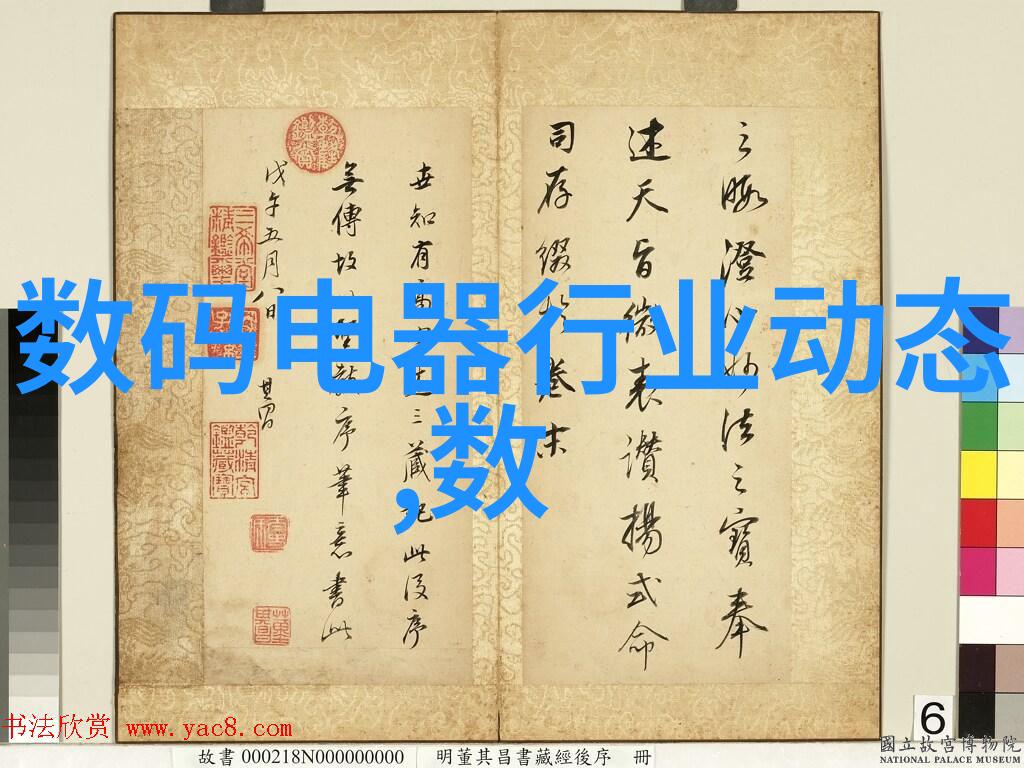 数码电器行业动态
,数
之暇澄心妙法之寶奉
述天旨微表讚揚式命
司存綴於卷末
世知有三藏記此後序
無傳故序筆意書此
戊午五月八日 其昌
6
书法欣赏 www.yac8.com
故書 000218N000000000 明董其昌書藏經後序 冊
國立故宮博物院
NATIONAL PALACE MUSEUM